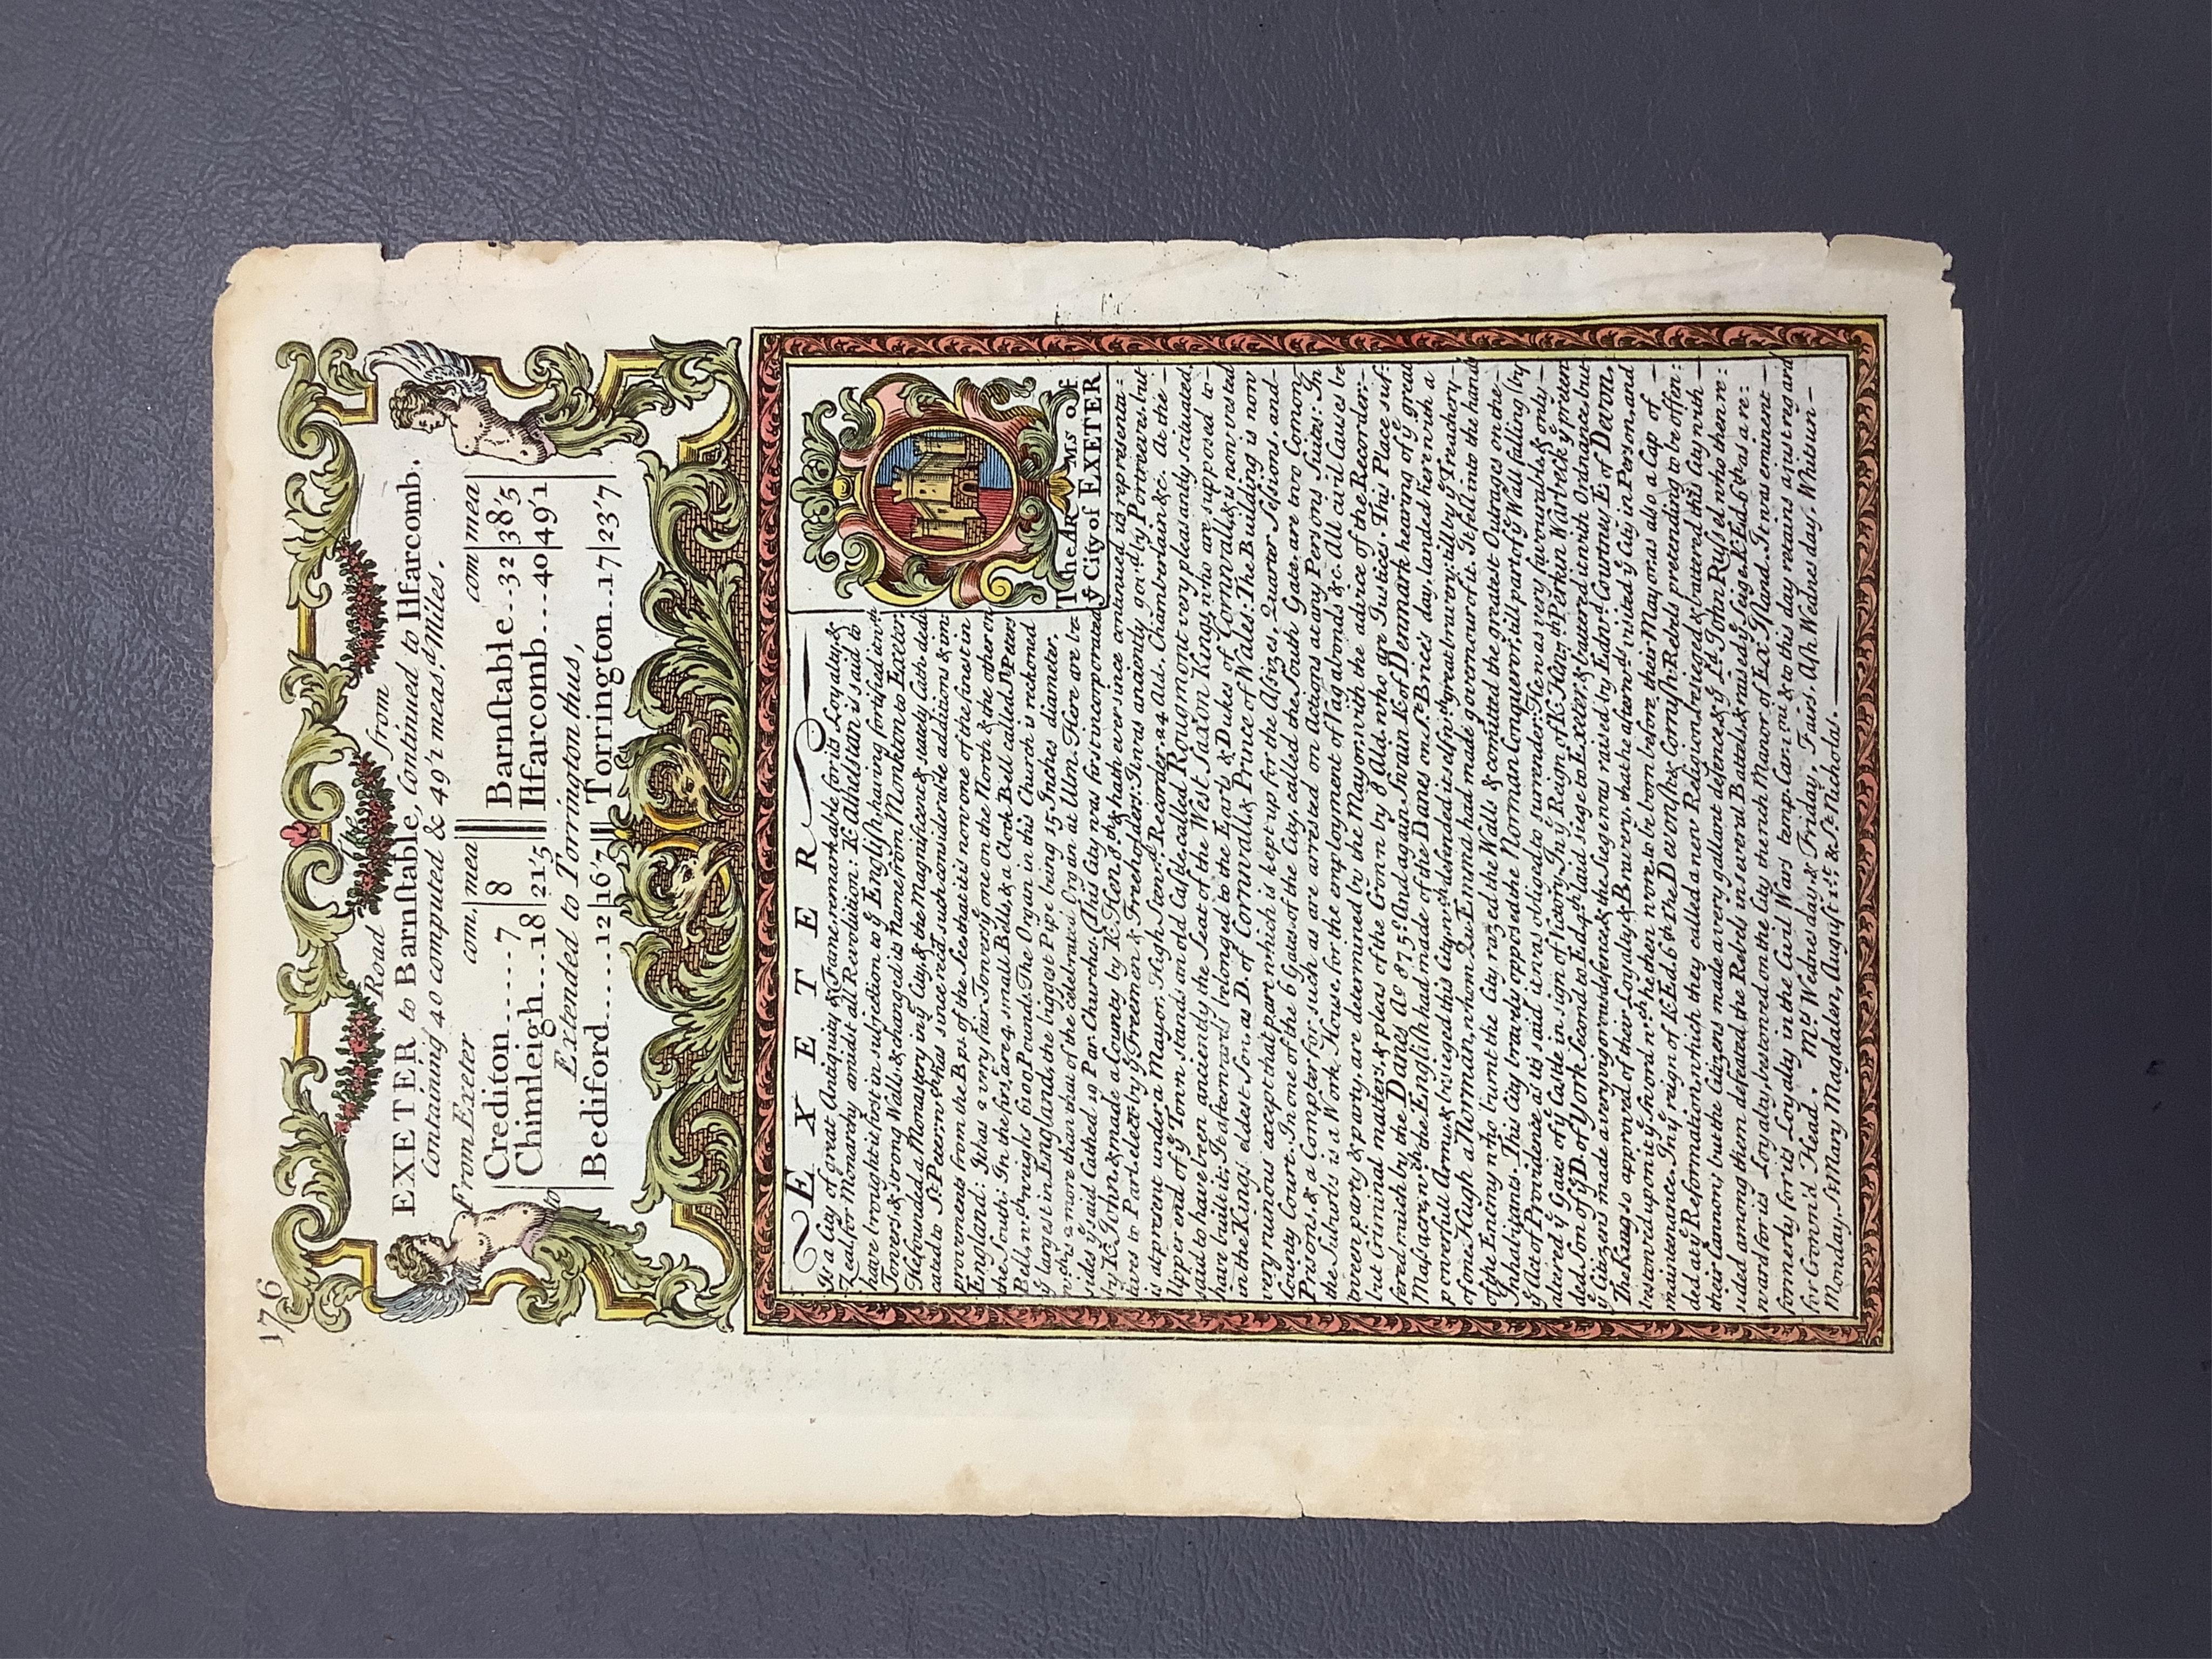 176
Road from
EXETER to Barnſtable, Continued to Ilfarcomb.
Containing 40 computed & 49'1 meas.d Miles.
From Exeter com, mea com mea
to Crediton.....7 8 Barnſtable..32 38'5
Chimleigh...18 21'5 Ilfarcomb....40 49'1
Extended to Torrington thus,
Bediford.....12 16'7 Torrington..17 23'7
EXETER
Is a City of great Antiquity & Fame, remarkable for its Loyalty, &
Zeal for Monarchy amidst all Revolution: K. Athelstan is said to
have brought it first in subjection to ye Engliſh, having fortified it with
Towers & strong Walls, & changed its name from Monkton to Exeter.
He founded a Monastery in ye City, & the Magnificent & stately Cath. dedi
cated to St. Peter wch has since recd. such considerable additions & im:
provements from the Bps. of the See that it is now one of the finest in
England: It has a very fair Tower, ye one on the North & the other on
the South; In the first are 4 small Bells, & a Clock Bell called St. Peters
Bell, wch weighs 6100 Pounds. The Organ in this Church is reckond
ye largest in England, the biggest Pipe being 15 Inches diameter.
wch is 2 more than that of the celebrated Organ at Ulm. Here are be
sides ye said Cathed. 19 Par. Churches. This City was first incorporated
The ARMS of
ye City of EXETER
by K. John, & made a County by K. Hen. 8th. & hath ever since continued its representa:
tives to Parl. elect. by ye Freemen & Freeholders: It was anciently gov.d by Portreeves, but
is at present under a Mayor, High Stew.d Recorder, 24 Ald. Chamberlain &c. At the
Upper end of ye Town stands an old Caſtle called Rougmont very pleasantly scituated,
said to have been anciently the Seat of the West Saxon Kings, who are supposed to
have built it: It afterwards belonged to the Earls & Dukes of Cornwall, & is now vested
in the Kings eldest Son as D. of Cornwall & Prince of Wales: The Building is now
very ruinous except that part which is kept up for the Aſsizes, Quarter Seſsions and
County Court. In one of the 6 Gates of the City, called the South Gate, are two Comon
Prisons, & a Compter for such as are arrested on Actions at any Persons Suite: In
the Suburbs is a Work-House, for the employment of Vagabonds &c. All civil Causes be
tween party & party, are determined by the Mayor with the advice of the Recorder:
but Criminal matters, & pleas of the Crown by 8 Ald. who are Justices. This Place suf:
fered much by the Danes Ao. 875: And again Swain K. of Denmark hearing of ye great
Maſsacre, wch the English had made of the Danes on St. Brices day, landed here with a
powerfull Army, & besieged this City, wch defended it self wth great bravery, till by ye Treachery
of one Hugh a Norman, whom Qu. Emma had made governour of it. It fell into the hands
of the Enemy who burnt the City razed the Walls & comitted the greatest Outrages on the
Inhabitants. This City bravely opposed the Norman Conqueror, till part of ye Wall falling (by
ye Act of Providence as its said) it was obliged to surrender: He was very favourable, & only
altered ye Gates of ye Castle in sign of victory. In ye Reign of K. Hen. 7th Perkin Warbeck ye preten:
ded Son of ye D. of York Second to Ed. 4th laid siege to Exeter, & batterred it with Ordnance, but
ye Citizens made a very vigorous defence, & the Siege was raised by Edwd. Courtney E. of Devon,
The King so approved of their Loyalty & Bravery, that he afterwds visited ye City in Person, and
bestowed upon it ye Sword wch he then wore, to be born before their Mayor, as also a Cap of
maintenance. In ye reign of K. Ed. 6th The Devonſh. & Corniſh Rebels pretending to be offen:
ded at ye Reformation, which they called a new Religion, besieged & battered this City with
their Cannon; but the Citizens made a very gallant defence, & ye Ld. John Ruſsel, who then re:
sided among them defeated the Rebels in several Battels, & raised ye Seige. K. Ed. 6th as a re:
ward for its Loyalty, bestowed on the City the rich Manor of Ex-Iſland. It was eminent
formerly for its Loyalty in the Civil Wars temp. Car. 1mi & to this day retains a just regard
for Crown'd Heads. Mts. Wednesday & Friday. Fairs. Aſh Wednesday, Whitsun
Monday, St. Mary Magdalen, August 1st. & St. Nicholas.